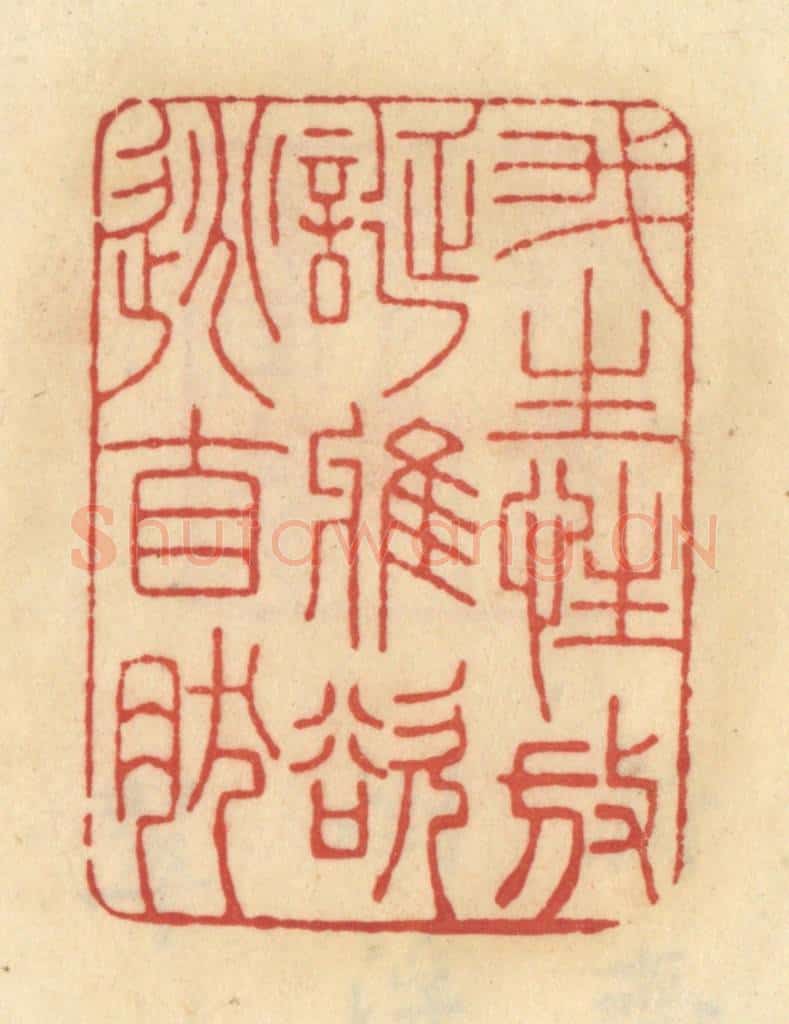 我生性放
誕雅欲
逃自然
Shufawang.CN